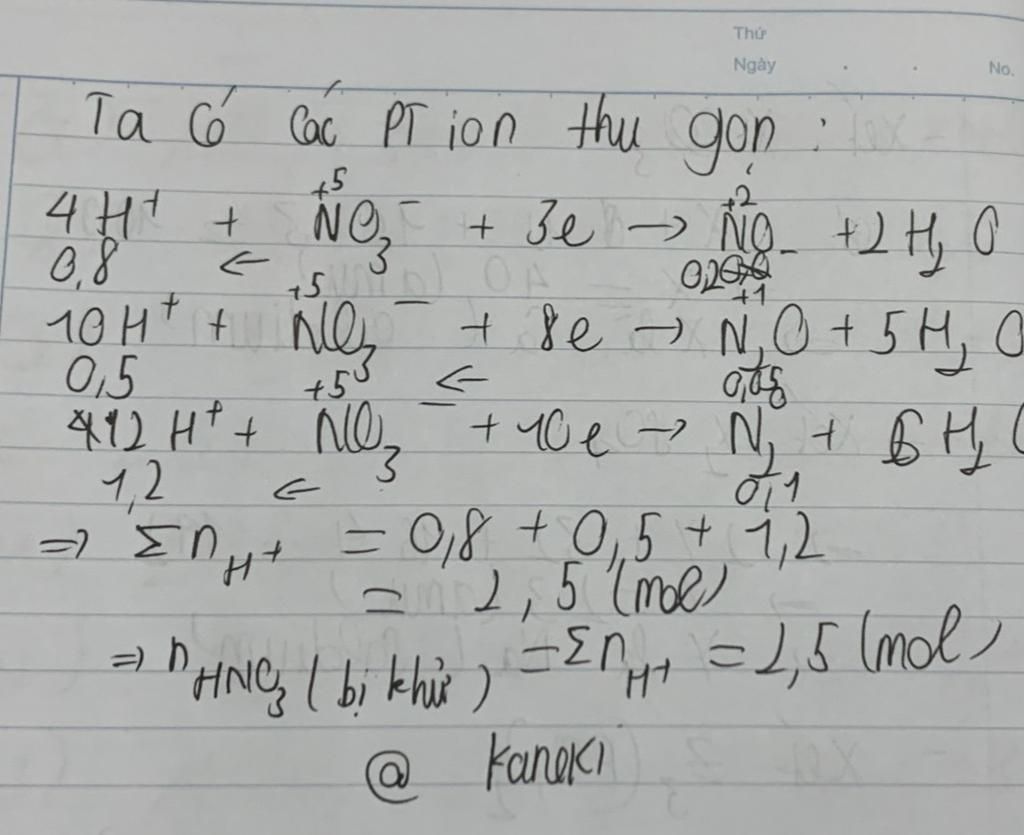 Thứ
Ngày . . No.
Ta có các PT ion thu gọn :
4H⁺ + N⁺⁵O₃⁻ + 3e → N⁺²O + 2H₂O
0,8 ← 0,2
10H⁺ + N⁺⁵O₃⁻ + 8e → N⁺¹₂O + 5H₂O
0,5 ← 0,05
12H⁺ + N⁺⁵O₃⁻ + 10e → N₂ + 6H₂
1,2 ← 0,1
⇒ Σn_H⁺ = 0,8 + 0,5 + 1,2
= 2,5 (mol)
⇒ n_HNO₃ (bị khử) = Σn_H⁺ = 2,5 (mol)
@ kaneki